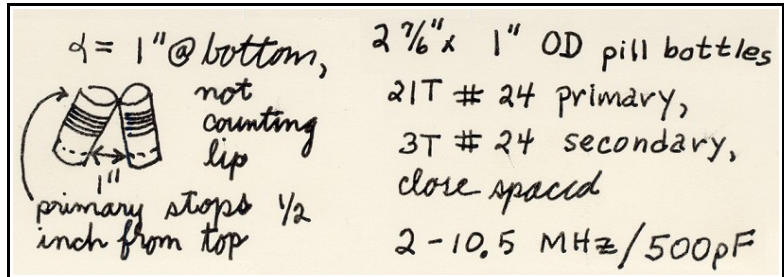 α = 1" @ bottom,
not
counting
lip
1"
primary stops 1/2
inch from top
2 7/6" x 1" OD pill bottles
21T # 24 primary,
3T # 24 secondary,
close spaced
2-10.5 MHz/500pF